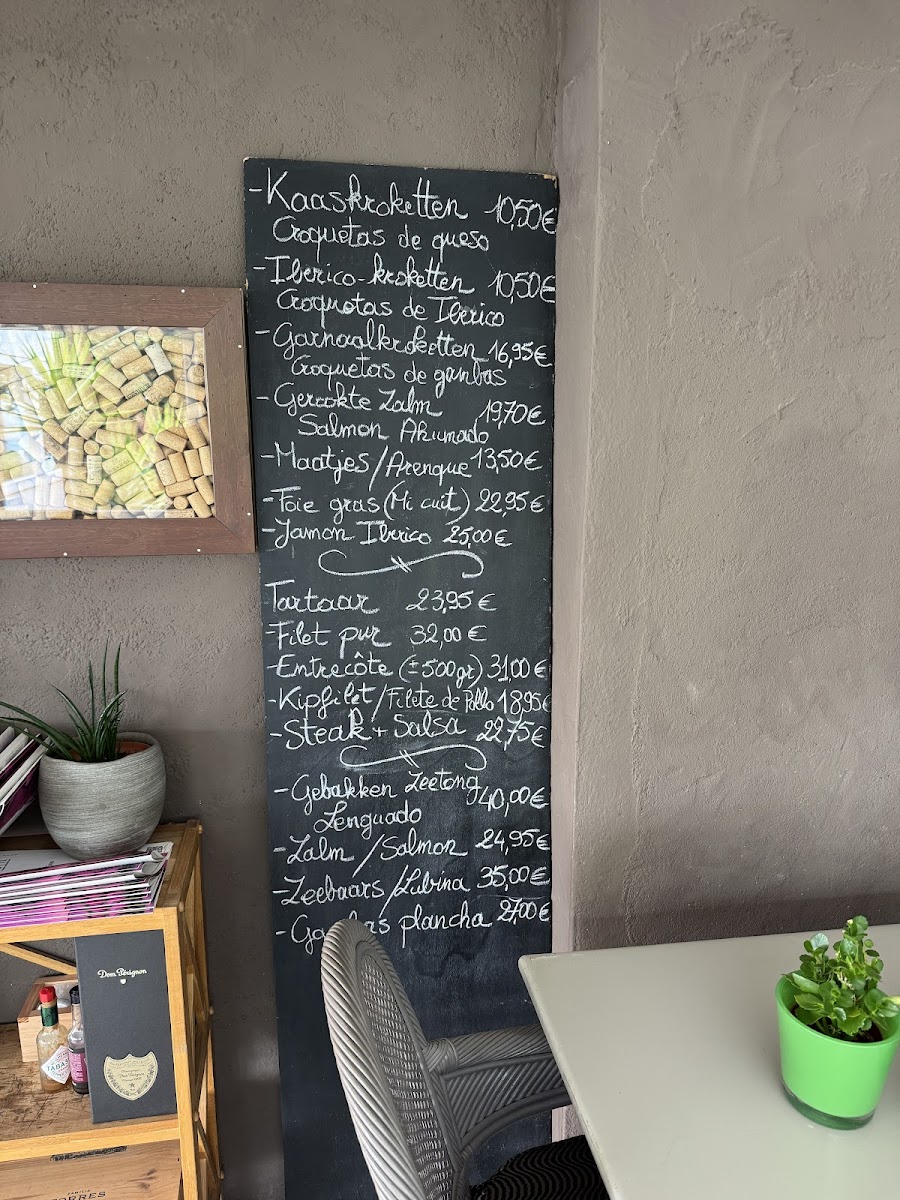 -Kaaskroketten 10,50€
Croquetas de queso
-Iberico-kroketten 10,50€
Croquetas de Iberico
-Garnaalkroketten 16,95€
Croquetas de gambas
-Gerookte Zalm 19,70€
Salmon Ahumado
-Maatjes/Arenque 13,50€
-Foie gras (Mi cuit) 22,95€
-Jamon Iberico 25,00€
Tartaar 23,95€
-Filet pur 32,00€
-Entrecôte (±500gr) 31,00€
-Kipfilet/Filete de Pollo 18,95€
-Steak + Salsa 22,75€
-Gebakken Zeetong 40,00€
Lenguado
-Zalm/Salmon 24,95€
-Zeebaars/Lubina 35,00€
- plancha 27,00€
Dom Pérignon
TABAS